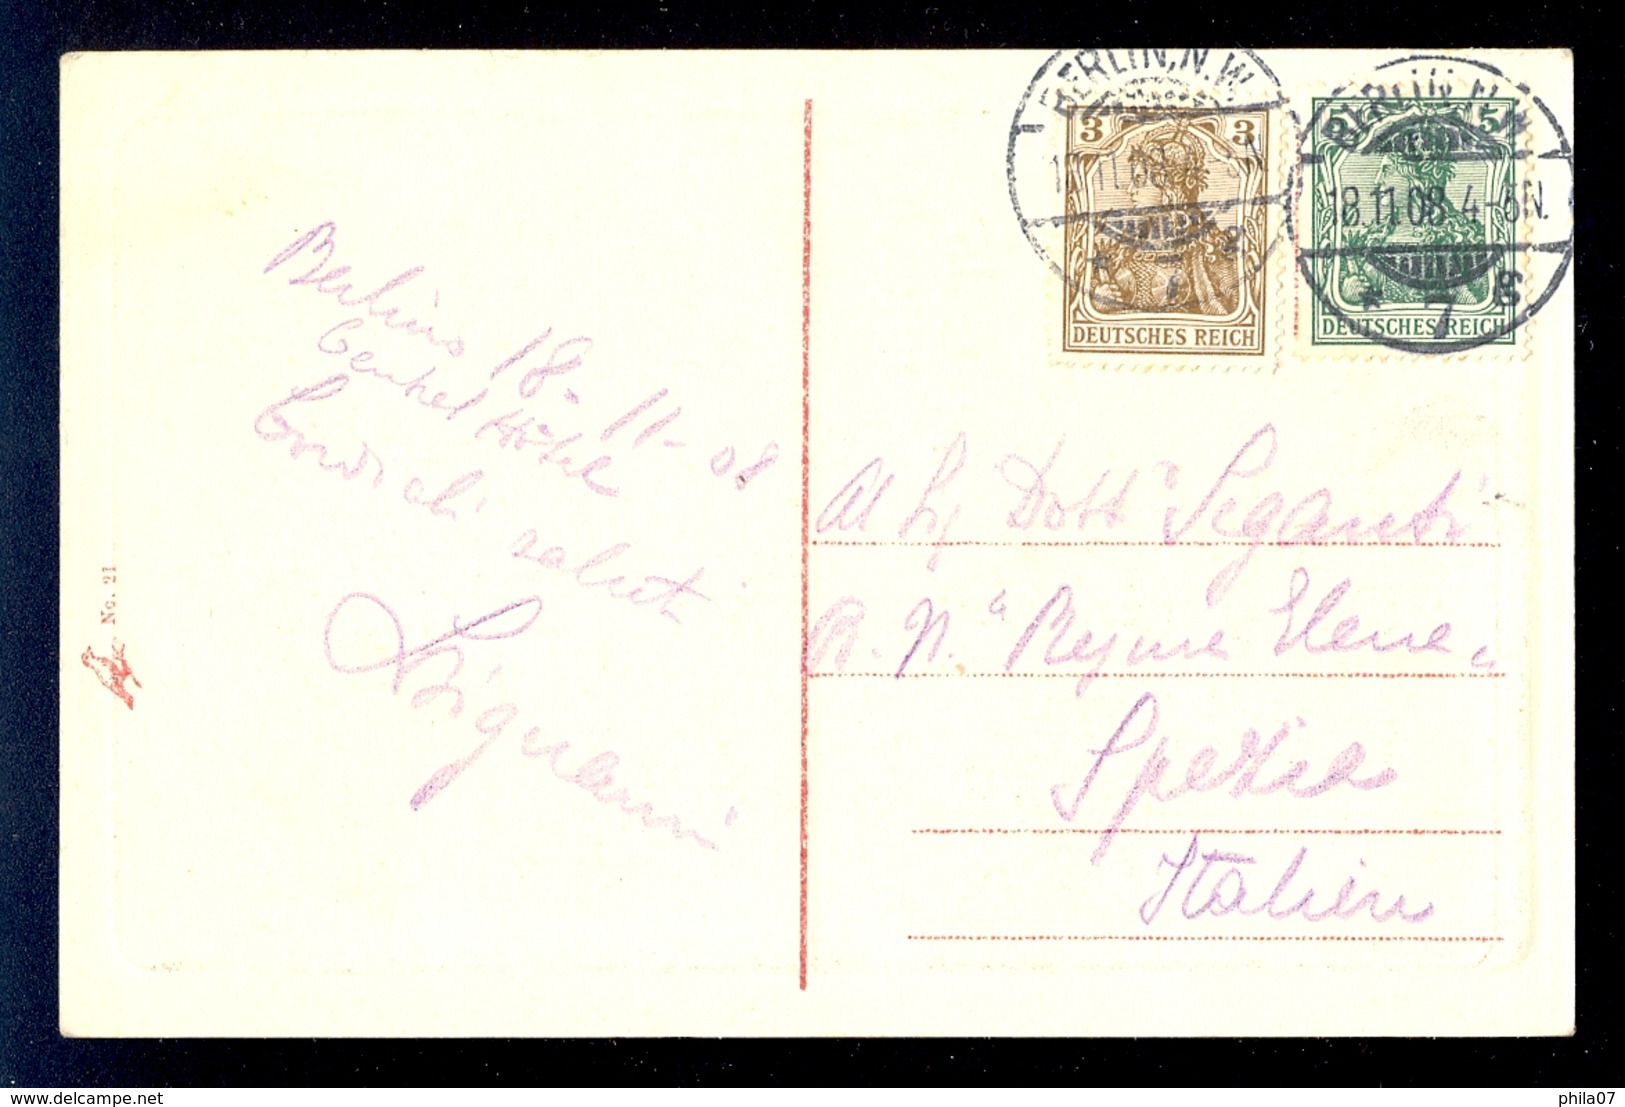 BERLIN, N.W.
18.11.08 4-5N.
* 7 g
BERLIN, N.W.
18.11.08 4-5N.
* 7 g
3 3
DEUTSCHES REICH
5 5
DEUTSCHES REICH
Berlino 18-11-08
Central Hôtel
Cordiali saluti
Al Sig Dott Seganti
R. N. "Regina Elena"
Spezia
Italien
No. 21
delcampe.net
phila07